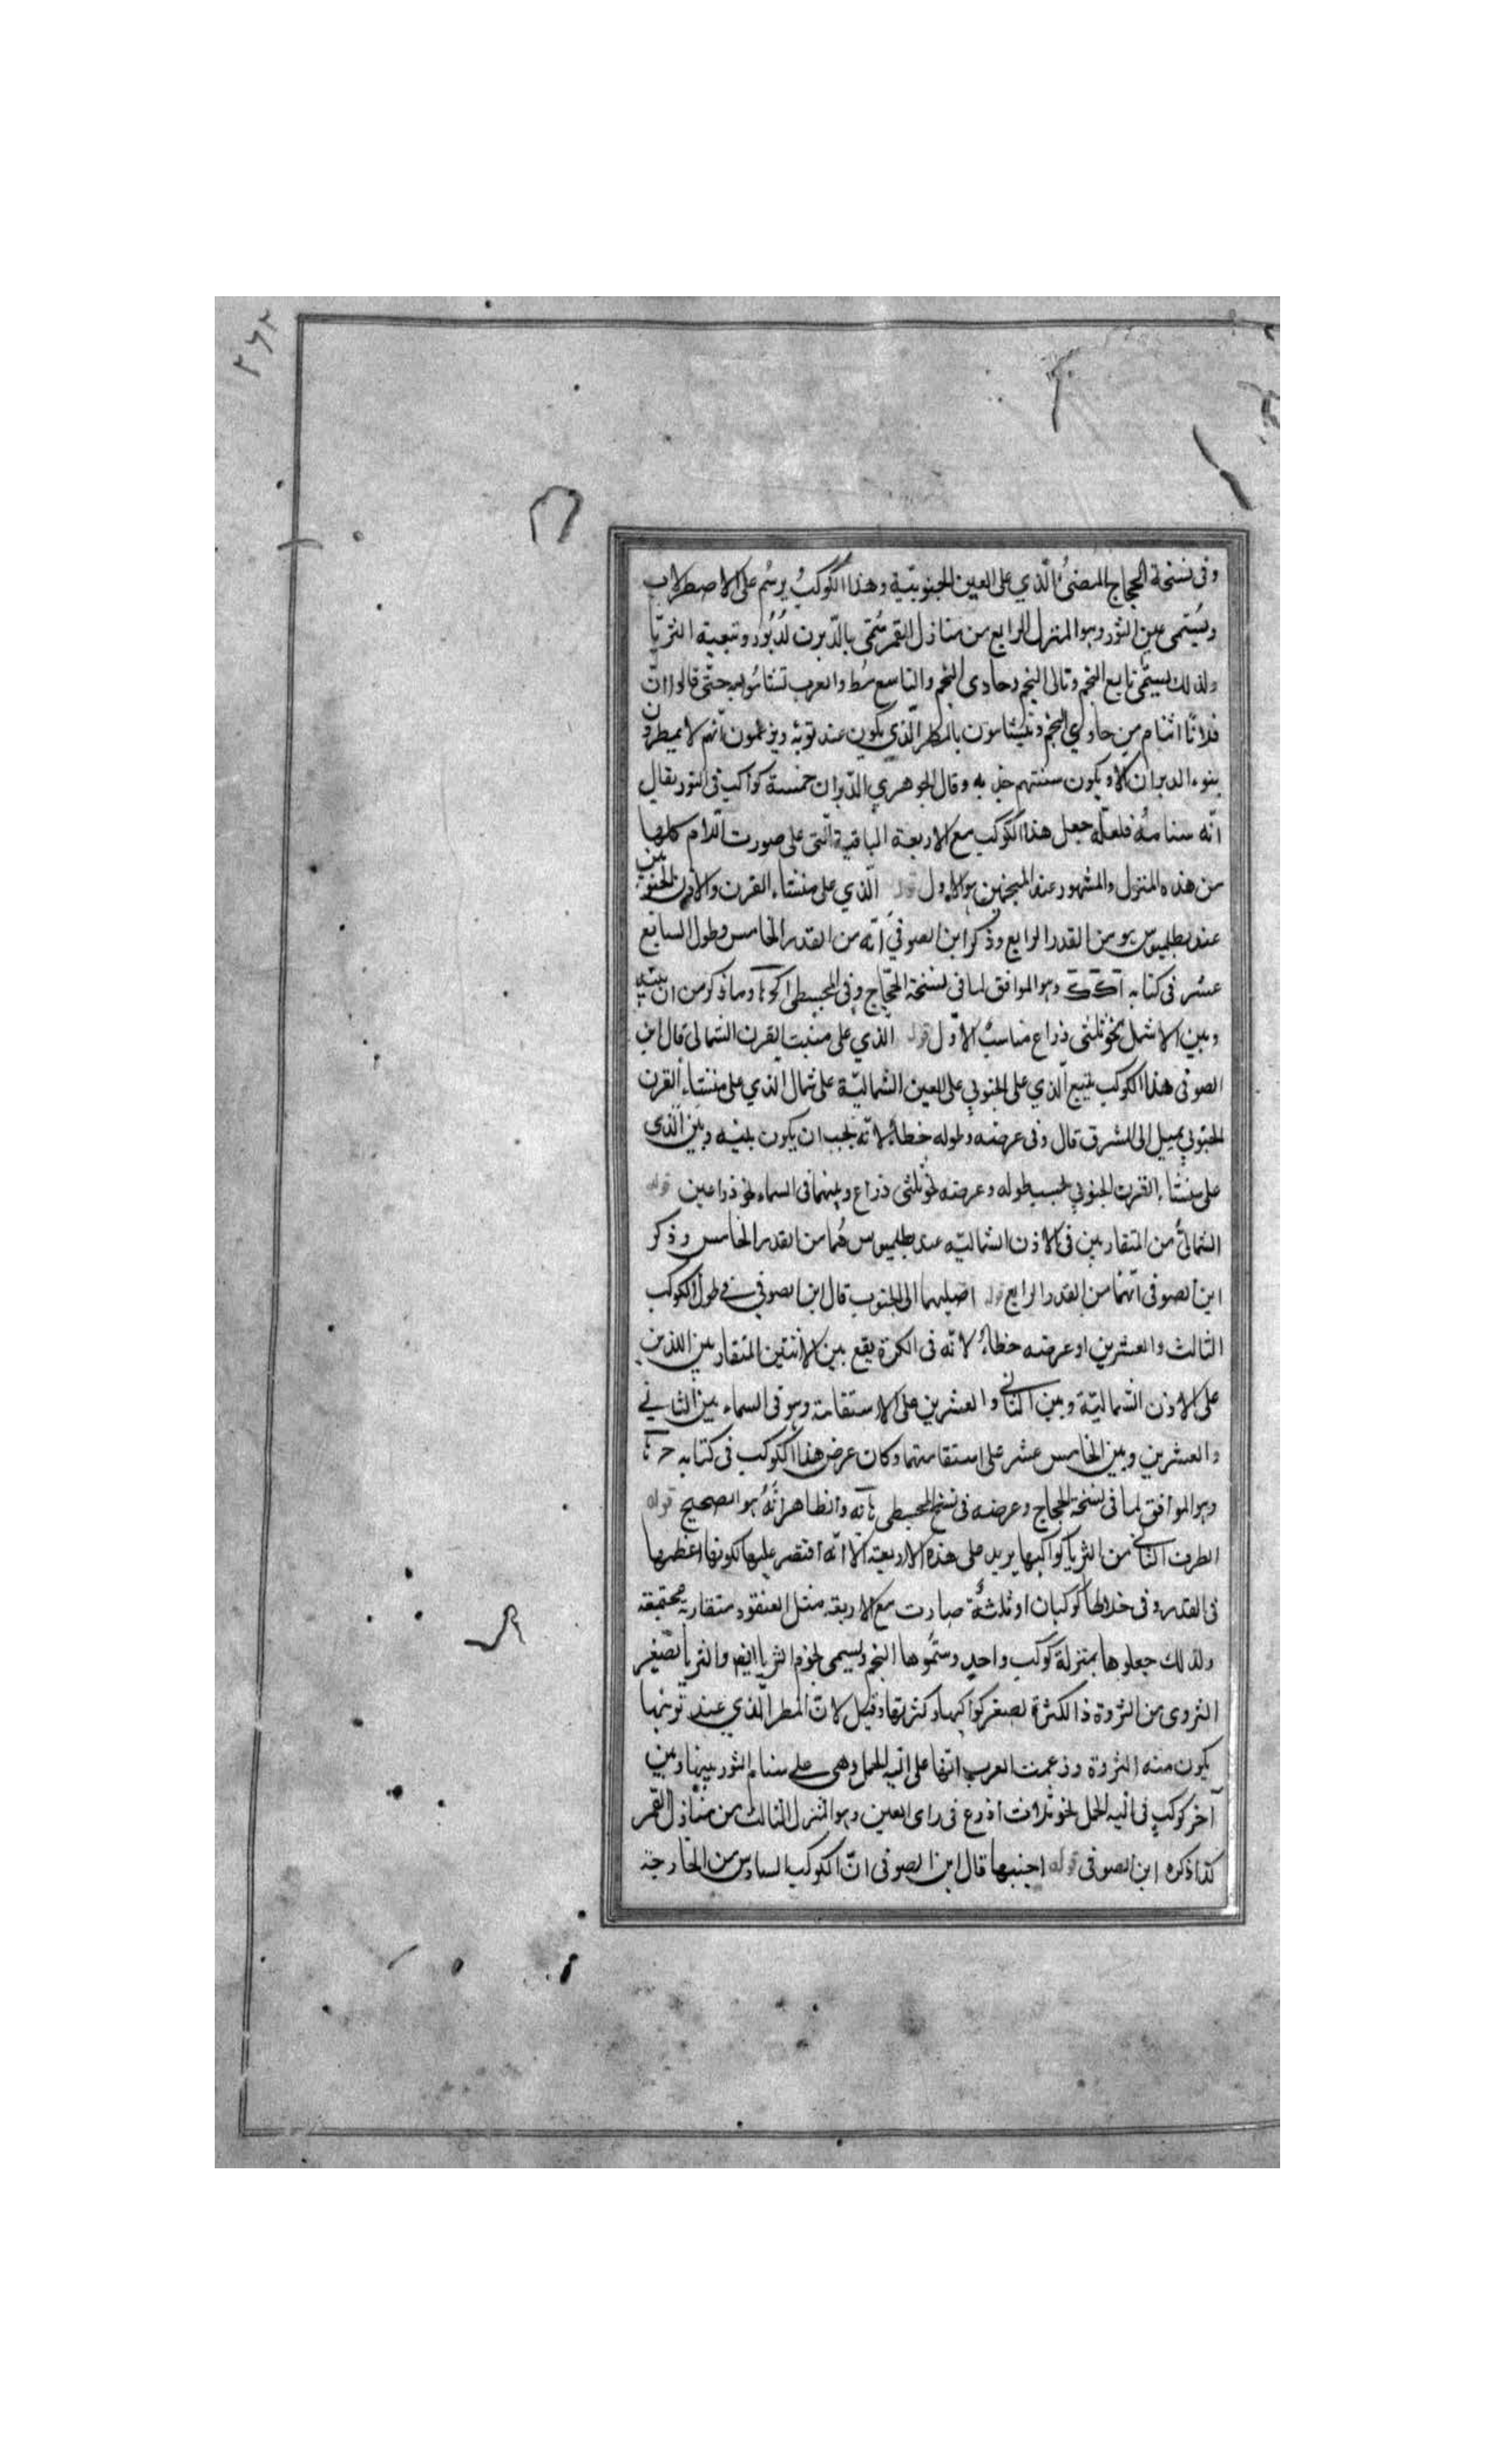 ٢٦٢
وفى نسخة الحجاج المضئُ الّذي على العين الجنوبيّة وهذا الكوكبُ يرسُم على الاصطرلاب
ويُسمّى عين الثور وهو المنزل الرابع من منازل القمر سُمّى بالدّبران لدُبُوره وتبعيته الثريّا
ولذلك يسمّى تابع النجم وتالى النجم وحادى النجم والتاسع سُط والعرب تتشأسُم به حتّى قالوا انّ
فلانًا اشأم من حادي النجم ويتشأمون بالمطر الّذي يكون عند نوئه ويزعمون انّهم لا يمطرون
بنوء الدبران الا ويكون سنتهم جدبه وقال الجوهري الدّبران خمسة كواكب فى الثور يقال
انّه سنامُه فلعلّه جعل هذا الكوكب مع الاربعة الباقية الّتى على صورت الدّام كلها
من هذه المنزل والمشهور عند المنجمين هو الاول قوله الّذي على منشاء القرن والاذن الجنوبيين
عند بطلميوس هو من القدر الرابع وذكر ابن الصوفي انّه من القدر الخامس وطول السابع
عشر فى كتابه اَ كَ كَ وهو الموافق لما فى نسخة الحجّاج وفى المجسطى وما ذكر من ان بينه
وبين الاشمل نحو ثلثى ذراع مناسبٌ الاوّل قوله الذي على منبت القرن الشمالى قال ابن
الصوفى هذا الكوكب يتبع الّذي على الجنوبي على العين الشماليّة على شمال الّذي على منشاء القرن
الجنوبي يميل الى المشرق قال وفى عرضه وطوله خطأ لانّه يجب ان يكون بينه وبين الّذى
على منشاء القرن الجنوبي بحسب طوله وعرضه نحو ثلثى ذراع وبينهما فى السماء نحو ذراعين قوله
الشمالىُّ من المتقاربين فى الاذن الشماليّه عند بطلميوس هُما من القدر الخامس وذكر
ابن الصوفى انّهما من القدر الرابع قوله اميلهما الى الجنوب قال ابن الصوفي فى طول الكوكب
الثالث والعشرين او عرضه خطأٌ لانّه فى الكرة يقع بين الاثنين المتقاربين اللذين
على الاذن الشماليّة وبين الثانى والعشرين على الاستقامة وهو فى السماء بين الثاني
والعشرين وبين الخامس عشر على استقامتهما وكان عرض هذا الكوكب فى كتابه
وهو الموافق لما فى نسخة الحجاج وعرضه فى نسخ المجسطى والظاهر انّهُ هو الصحيح قوله
الطرف الثانى من الثريا كواكبها يزيد على هذه الاربعة الّا انّه اقتصر عليها لكونها اعظمها
فى القدر وفى خلالها كوكبان او ثلثةٌ صارت مع الاربعة مثل العنقود متقاربة مجتمعة
ولذلك جعلوها بمنزلة كوكب واحدٍ وسمّوها النجم ويسمى نجوم الثريا ايضا والثريا تصغير
الثروى من الثروة ذا الكثرة لصغر كواكبها وكثرتها وقيل لانّ المطر الّذي عند نوئها
يكون منه الثروة وزعمت العرب انّها على الية الحمل وهى على سنام الثور بينها وبين
آخر كوكبٍ فى الية الحمل نحو ثلاث اذرع فى راى العين وهو المنزل الثالث من منازل القمر
كذا ذكره ابن الصوفى قوله اجنبها قال ابن الصوفى انّ الكوكب السادس من الخارجة